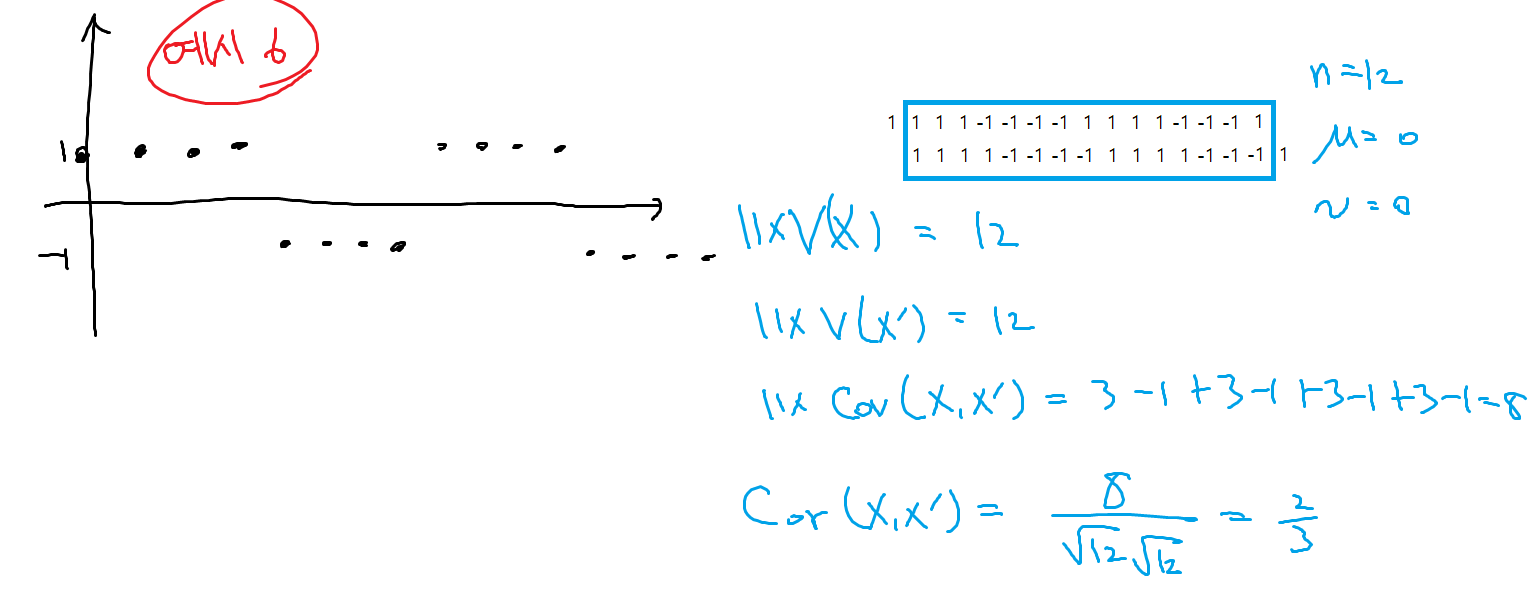 예시 6
1
-1
1 1 1 1 -1 -1 -1 -1 1 1 1 1 -1 -1 -1 1
1 1 1 1 -1 -1 -1 -1 1 1 1 1 -1 -1 -1 1
n=12
μ=0
ν=0
11×V(X) = 12
11×V(X′) = 12
11× Cov(X,X′) = 3-1+3-1+3-1+3-1=8
Cor(X,X′) = 8/√12√12 = 2/3